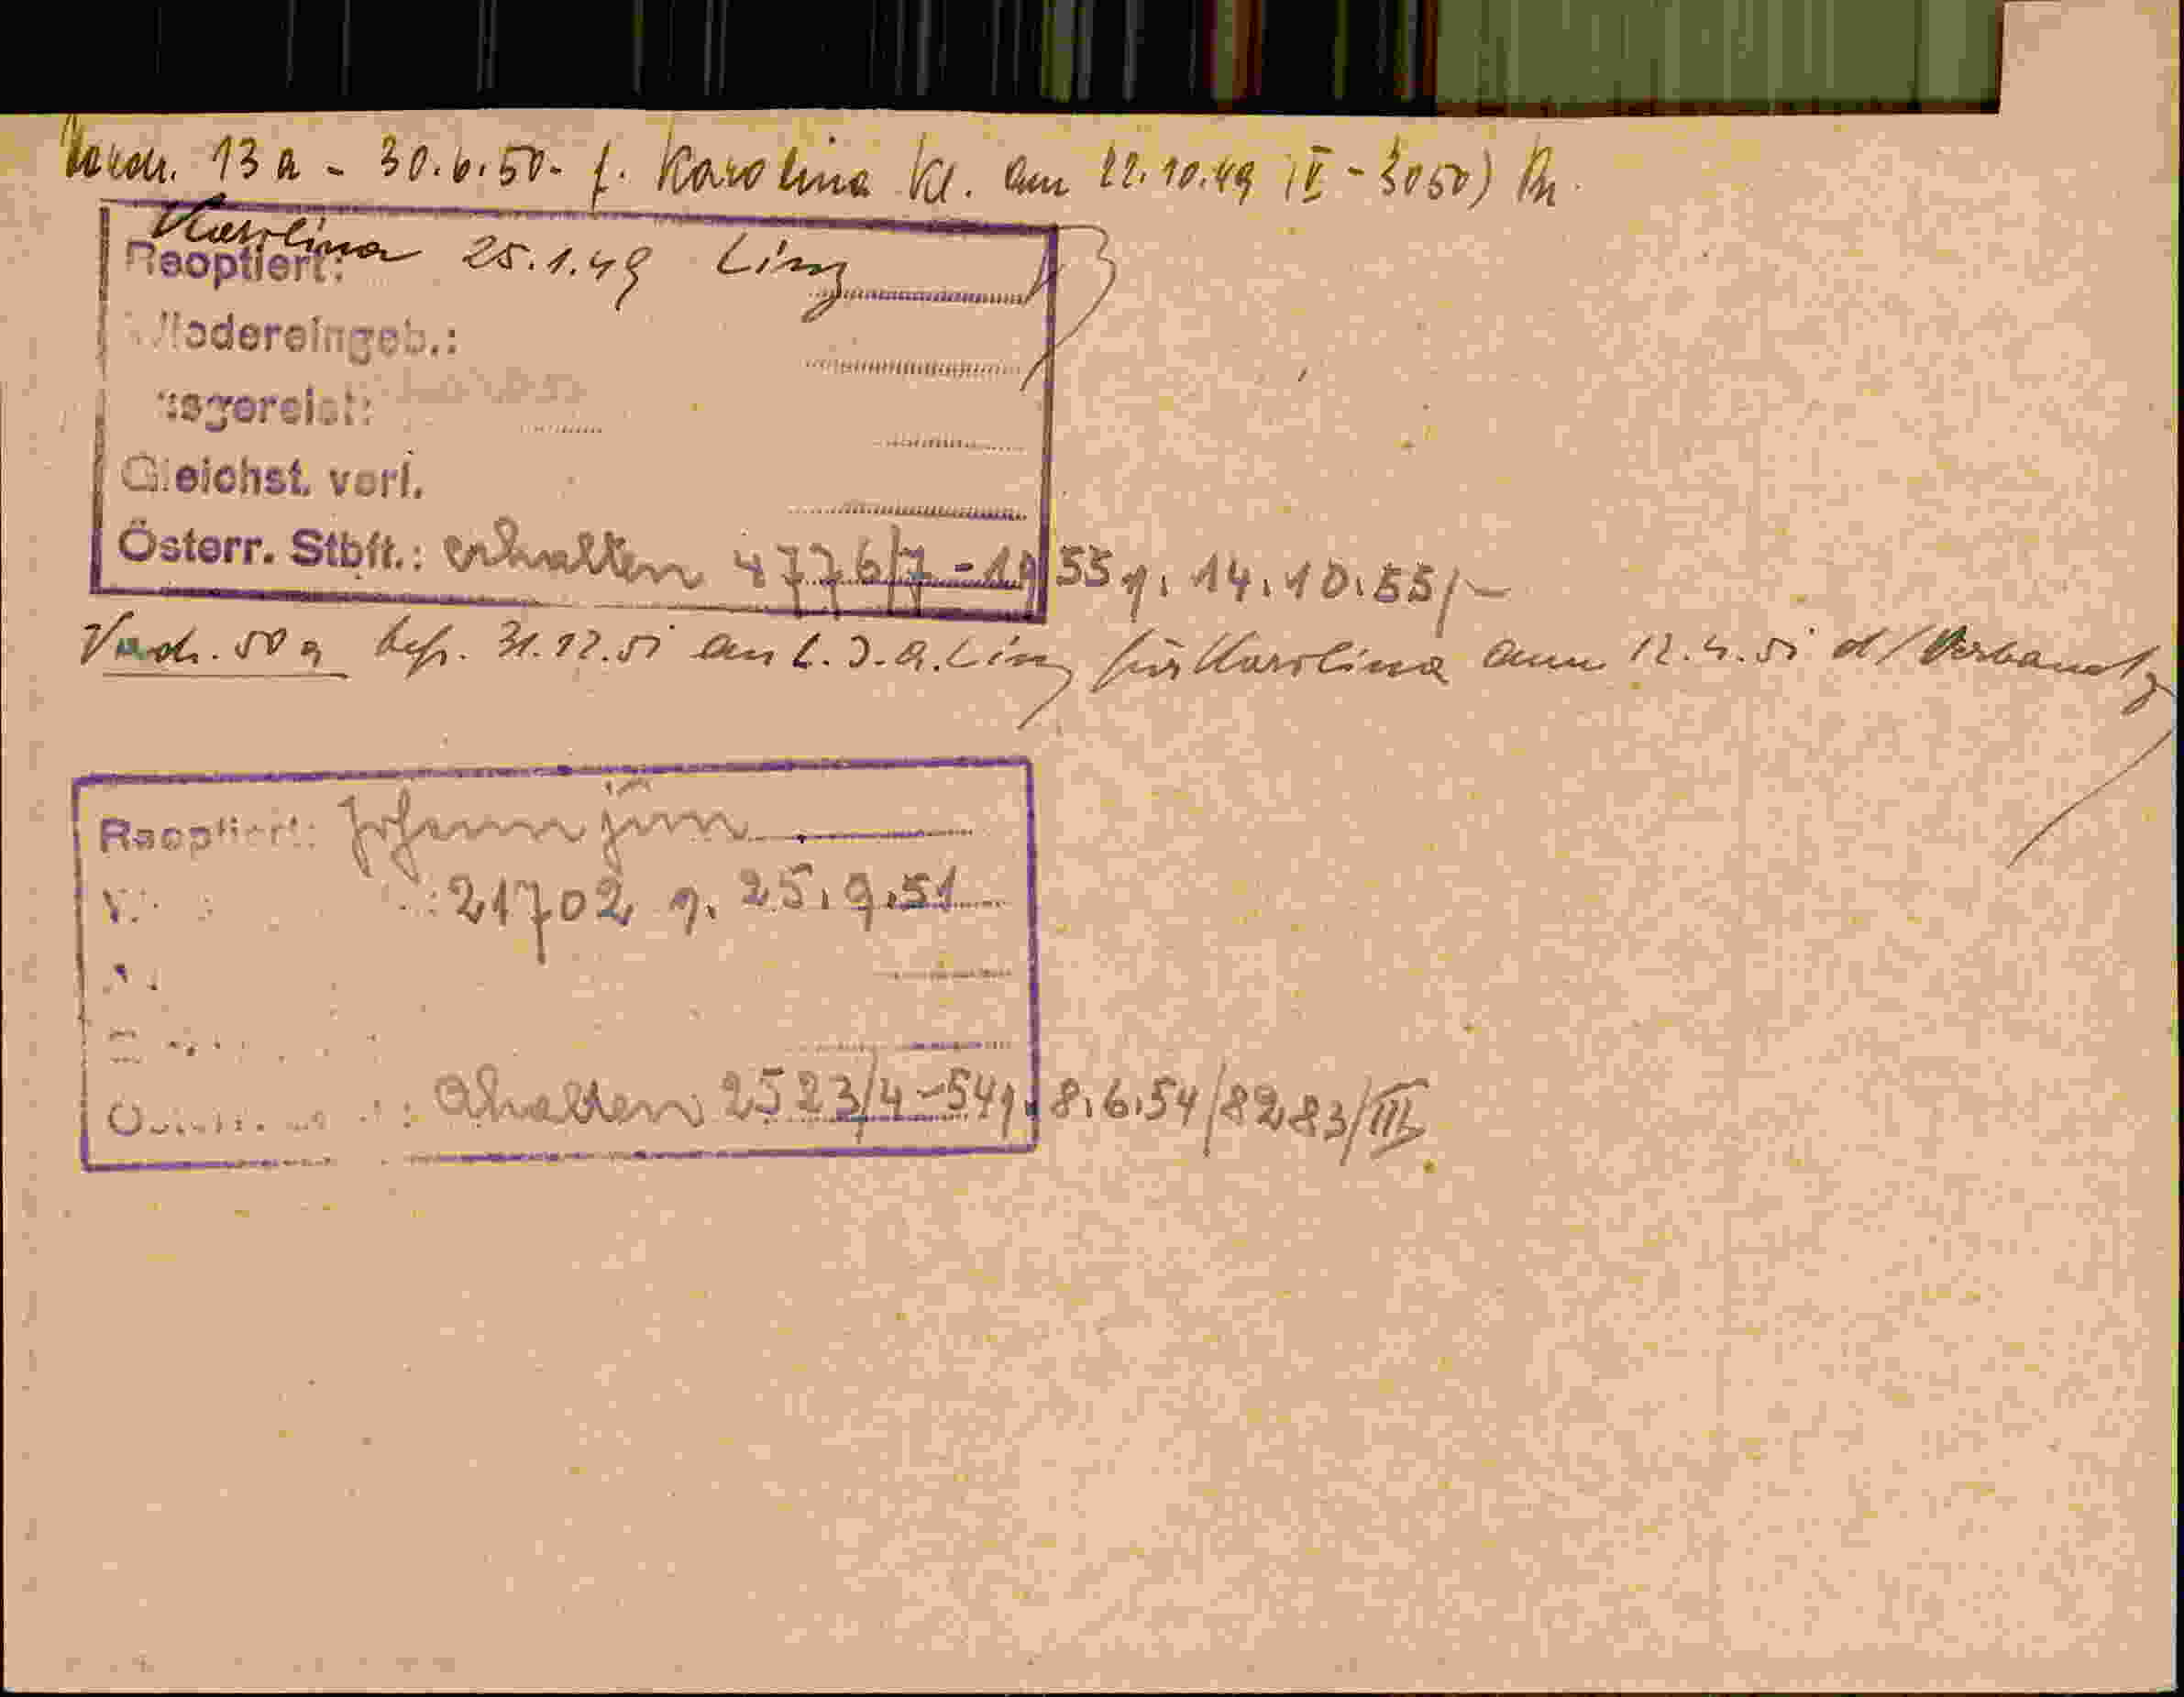 Vordr. 13 a - 30.6.50 - f. Karolina Kl. am 22.10.49 IV - 3050)
Karolina 25.1.49 Linz
Reoptiert:
Wiedereingeb.:
Ausgereist:
Gleichst. verl.
Österr. Stbft.: erhalten 4776/7-1955 v. 14.10.55/-
Vordr. 50 a bef. 31.12.51 an L. I. A. Linz für Karolina 12.4.51 d/
Reoptiert: Johann jun
21702 v. 25.9.51
erhalten 2523/4-54 v. 8.6.54/8283/III